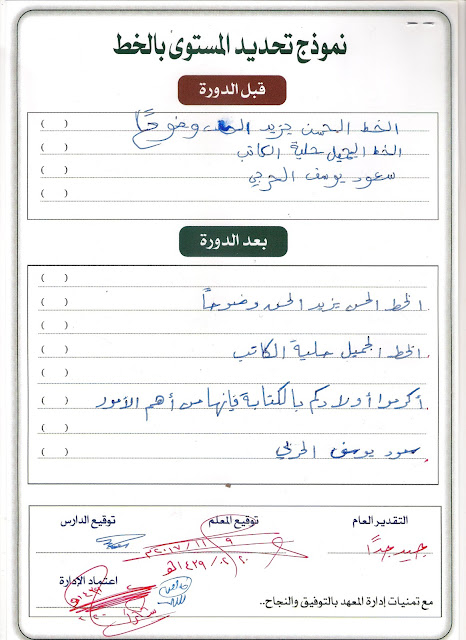 نموذج تحديد المستوى بالخط
قبل الدورة
الخط الحسن يزيد الحق وضوحاً ( )
الخط الجميل حلية الكاتب ( )
سعود يوسف الحربي ( )
( )
بعد الدورة
( )
الخط الحسن يزيد الحق وضوحاً ( )
( )
الخط الجميل حلية الكاتب ( )
( )
أكرموا أولادكم بالكتابة فإنها من أهم الأمور ( )
( )
سعود يوسف الحربي ( )
التقدير العام توقيع المعلم توقيع الدارس
جيد جداً
٩ / ١١ / ٢٠١٧م
٢٠ / ٠٢ / ١٤٣٩هـ
اعتماد الإدارة
مع تمنيات إدارة المعهد بالتوفيق والنجاح..